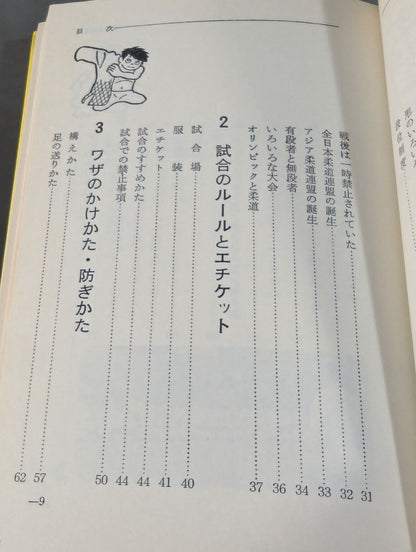 目次
戦後は一時禁止されていた……31
全日本柔道連盟の誕生……32
アジア柔道連盟の誕生……33
有段者と無段者……34
いろいろな大会……36
オリンピックと柔道……37
2 試合のルールとエチケット
試合場……40
服装……41
エチケット……44
試合のすすめかた……44
試合での禁止事項……50
3 ワザのかけかた・防ぎかた
構えかた……57
足の送りかた……62
—9